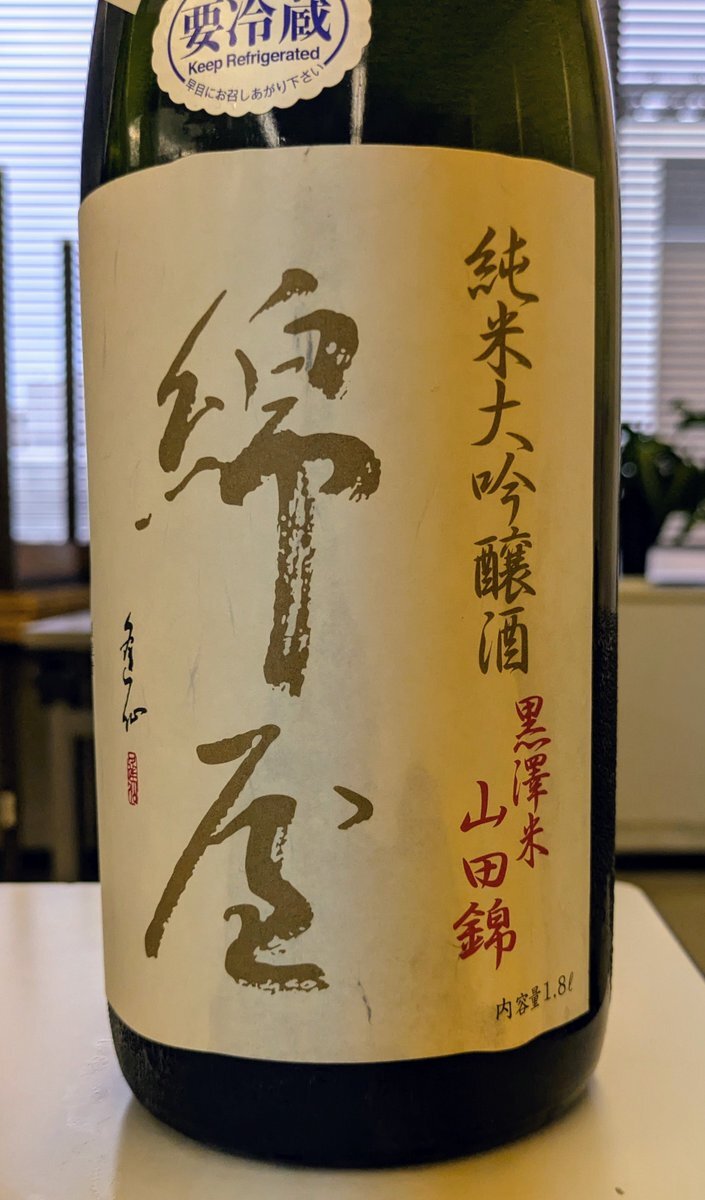 要冷蔵
Keep Refrigerated
早目にお召しあがり下さい
純米大吟醸酒
黒澤米
山田錦
内容量1.8ℓ
綿屋